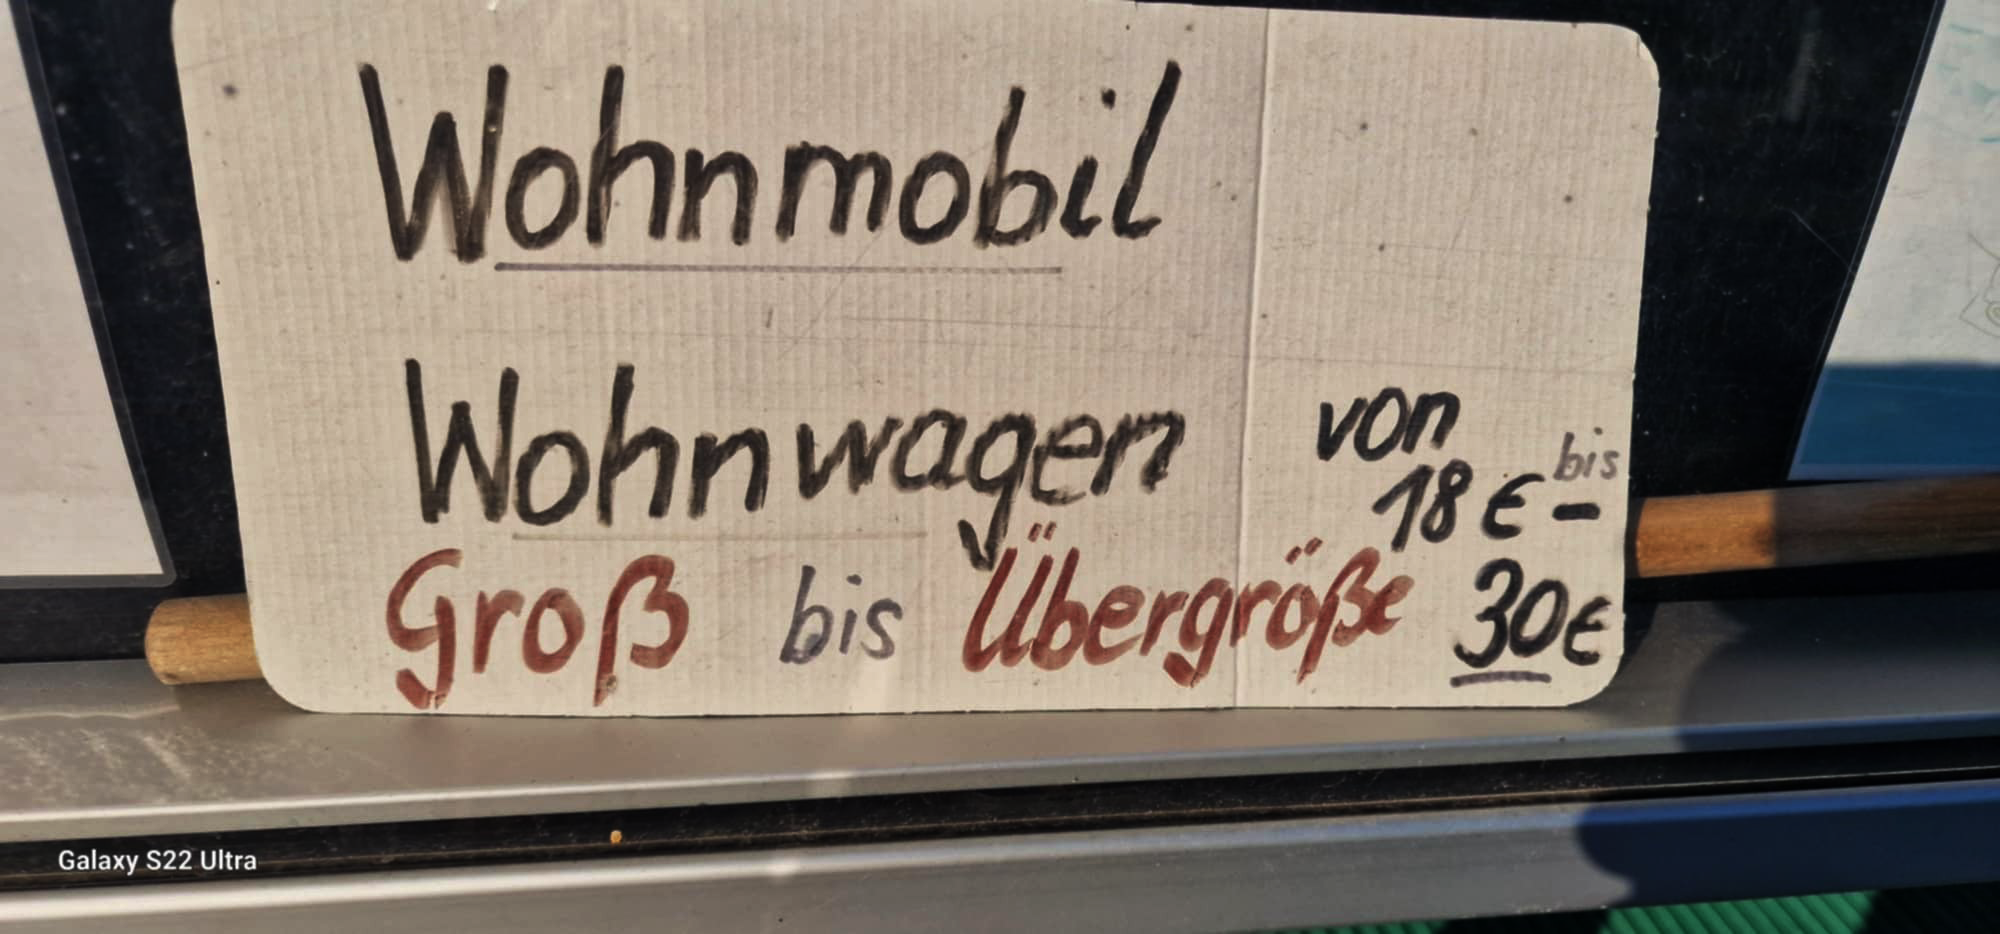 Wohnmobil
Wohnwagen
von
18 € - bis
Groß bis Übergröße 30€
Galaxy S22 Ultra